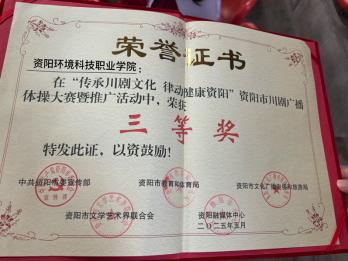 荣誉证书
资阳环境科技职业学院：
在“传承川剧文化 律动健康资阳”资阳市川剧广播
体操大赛暨推广活动中，荣获
三等奖
特发此证，以资鼓励！
中共资阳市委宣传部 资阳市教育和体育局 资阳市文化广播电视和旅游局
资阳市文学艺术界联合会 资阳融媒体中心
二〇二五年五月